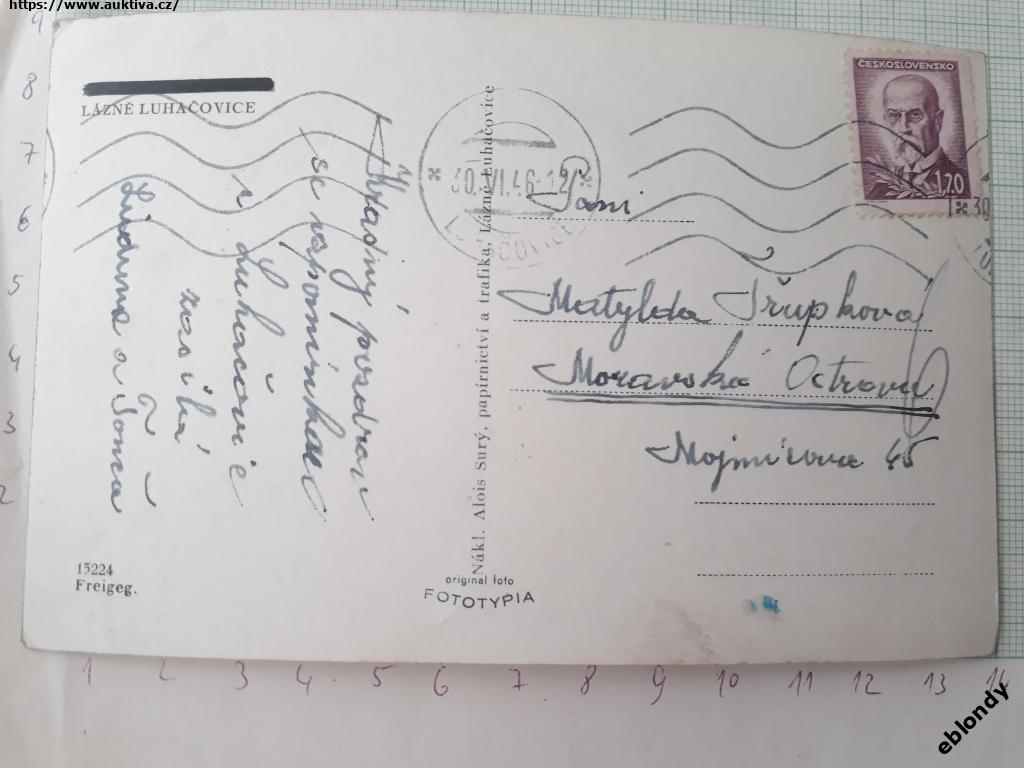 https://www.auktiva.cz/
LÁZNĚ LUHAČOVICE
Šťastný pozdrav
se vzpomínkou
z Luhačovic
zasílá
a Toma
15224
Freigeg.
Nákl. Alois Surý, papírnictví a trafika, Lázně Luhačovice
original foto
FOTOTYPIA
30.VI.46-12
ČESKOSLOVENSKO
1,70
Paní
Matylda Třupková
Moravská Ostrava
Mojmírova 45
9
8
7
6
5
4
3
2
1 2 3 4 5 6 7 8 9 10 11 12 13 14
eblondy